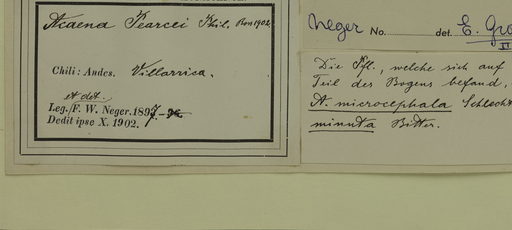 Acaena Pearcei Phil. Bon 1902.
Chili: Andes. Villarrica.
et det.
Leg. F. W. Neger. 1897-
Dedit ipse X. 1902.
Neger No. det. E. Gro
Die Pfl., welche sich auf
Teil des Bogens befand,
A. microcephala Schlecht
minuta Bitter.